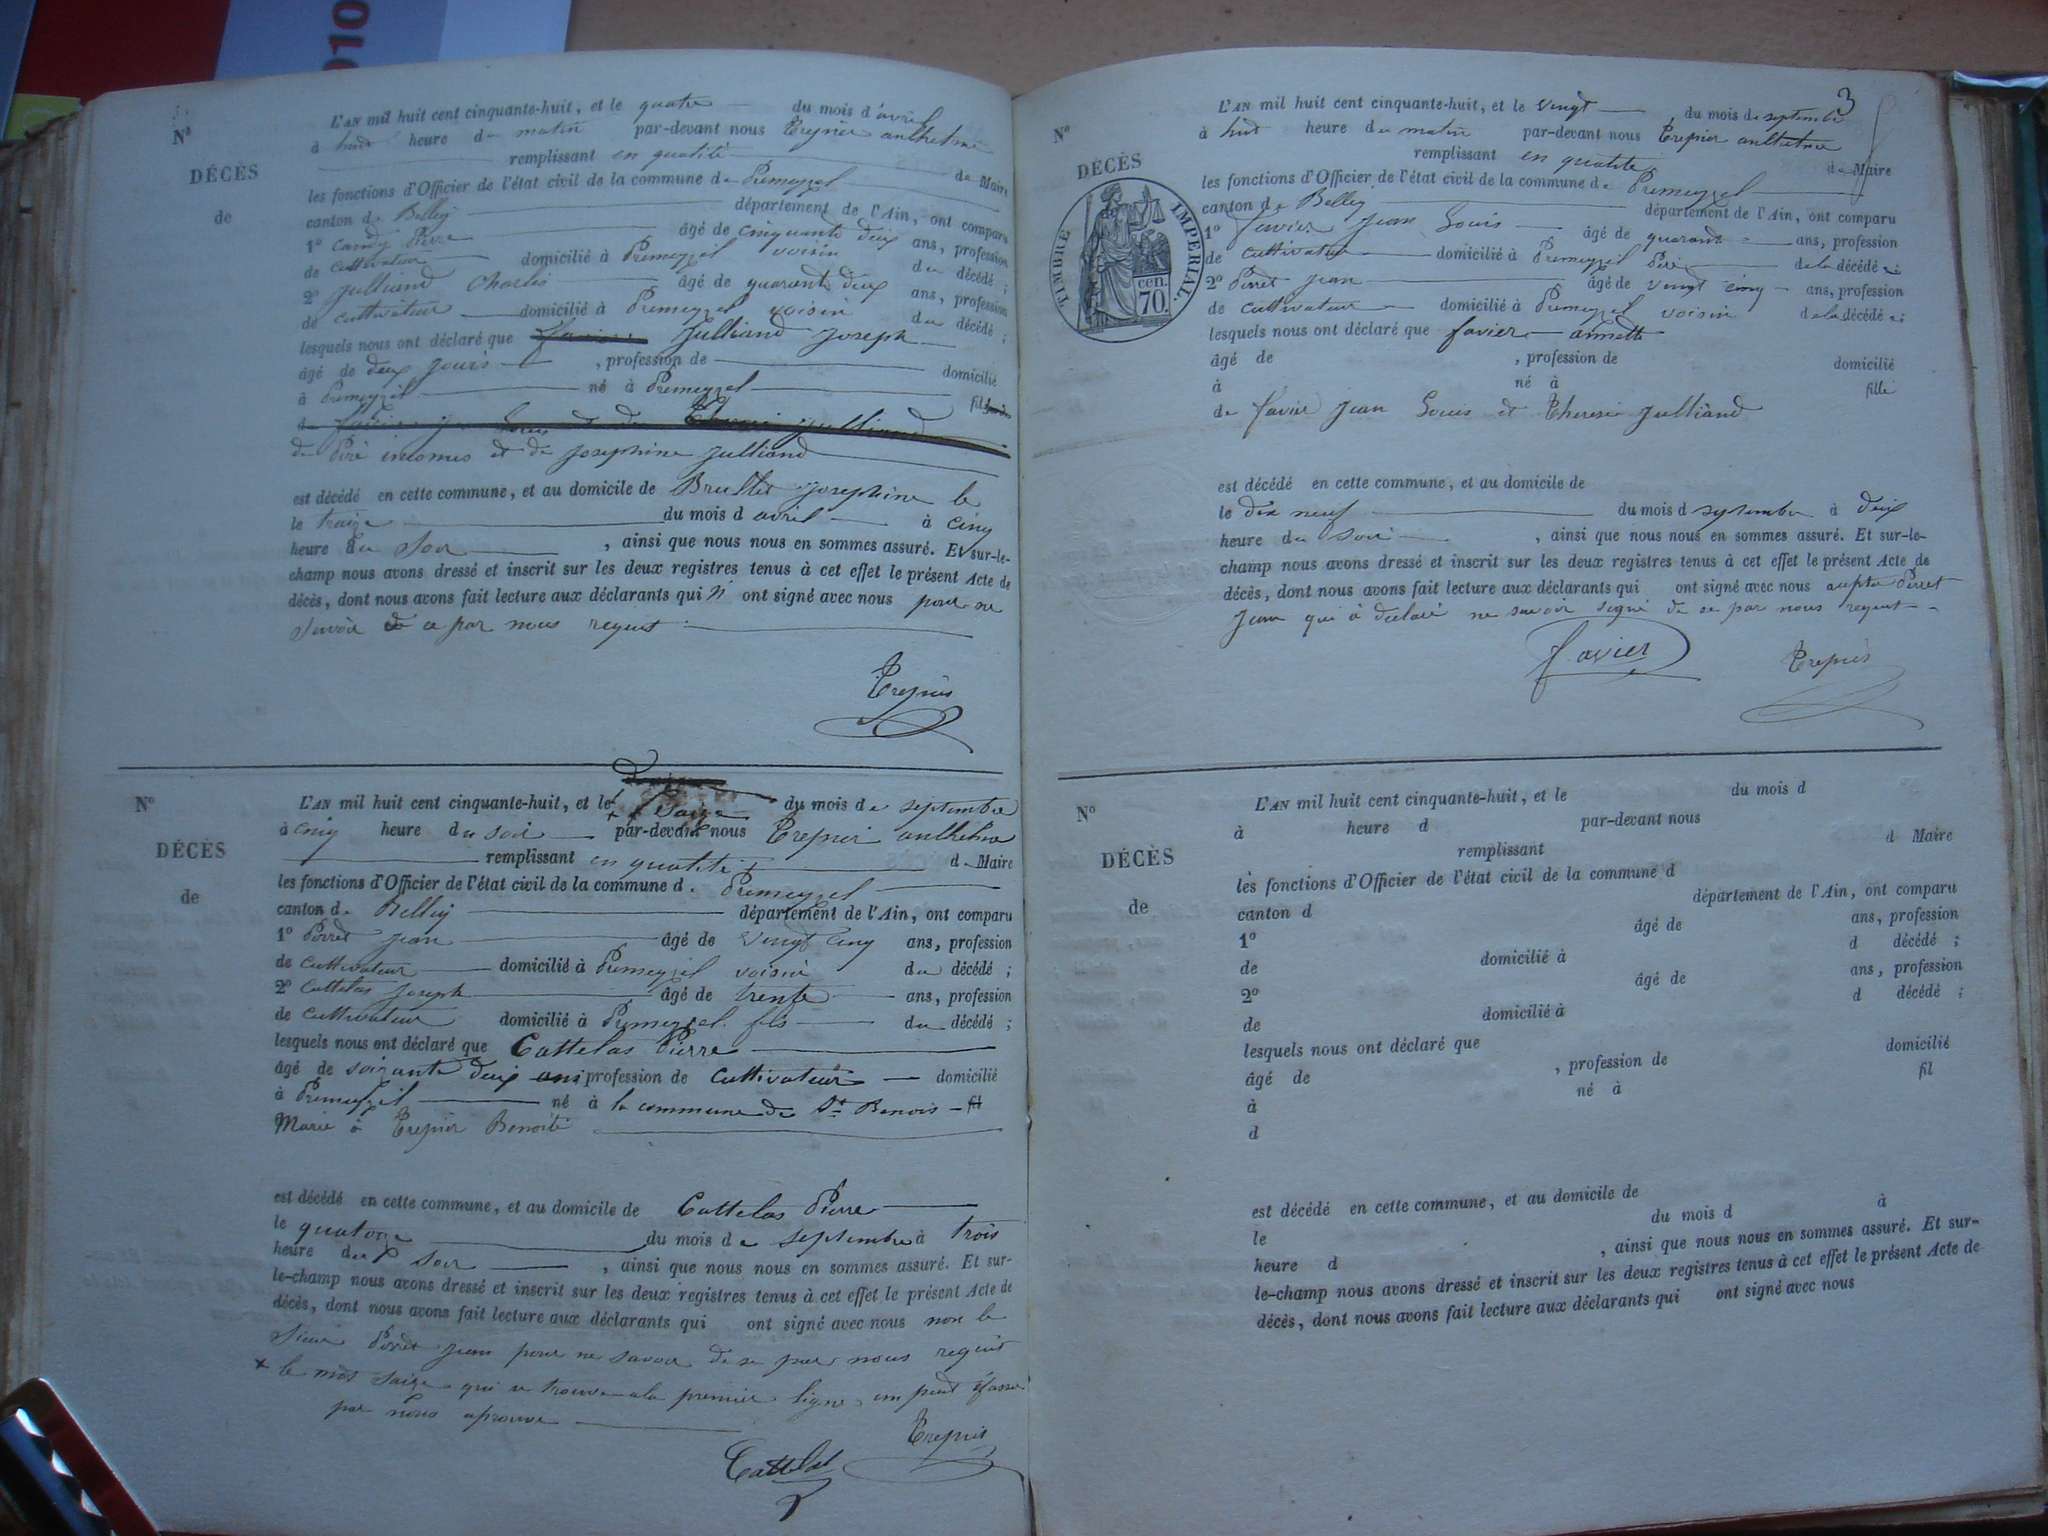 010
N°
DÉCÈS
de
L'AN mil huit cent cinquante-huit, et le quatre du mois d'avril
à huit heure du matin par-devant nous Trepier anthelme
remplissant en qualité de Maire
les fonctions d'Officier de l'état civil de la commune de Premeyzel
canton de Belley département de l'Ain, ont comparu
1° Candy Pierre âgé de cinquante deux ans, profession
de cultivateur domicilié à Premeyzel voisin du décédé ;
2° Julliand Charles âgé de quarante deux ans, profession
de cultivateur domicilié à Premeyzel voisin du décédé ;
lesquels nous ont déclaré que favier Julliand Joseph
âgé de deux jours , profession de domicilié
à Premeyzel né à Premeyzel fil
de favier jean Louis et de Therese julliand
de Père inconnus et de Josephine Julliand
est décédé en cette commune, et au domicile de Brullet Josephine le
le traize du mois d avril à cinq
heure du Soir , ainsi que nous nous en sommes assuré. Et sur-le-
champ nous avons dressé et inscrit sur les deux registres tenus à cet effet le présent Acte de
décès, dont nous avons fait lecture aux déclarants qui n' ont signé avec nous pour ne
Savoir de ce par nous requit
Trepier
N°
DÉCÈS
de
L'AN mil huit cent cinquante-huit, et le + Saize du mois de septembre
à cinq heure du soir par-devant nous Trepier anthelme
remplissant en qualité de Maire
les fonctions d'Officier de l'état civil de la commune d. Premeyzel
canton de Belley département de l'Ain, ont comparu
1° Perret Jean âgé de vingt cinq ans, profession
de cultivateur domicilié à Premeyzel voisin du décédé ;
2° Cattelas Joseph âgé de trente ans, profession
de cultivateur domicilié à Premeyzel fils du décédé ;
lesquels nous ont déclaré que Cattelas Pierre
âgé de soixante deux ans profession de cultivateur domicilié
à Premeyzel né à la commune de St Benois fil
Marié à Trepier Benoite
est décédé en cette commune, et au domicile de Cattelas Pierre
le quatorze du mois de septembre à trois
heure du soir , ainsi que nous nous en sommes assuré. Et sur-
le-champ nous avons dressé et inscrit sur les deux registres tenus à cet effet le présent Acte de
décès, dont nous avons fait lecture aux déclarants qui ont signé avec nous non le
Sieur Perret Jean pour ne savoir de se par nous requit
+ le mot saize qui se trouve a la premier ligne un peut éfassé
par nous aprouvé
Trepier
Cattelat
3
N°
DÉCÈS
TIMBRE IMPÉRIAL.
cen.
70.
L'AN mil huit cent cinquante-huit, et le vingt du mois de septembre
à huit heure du matin par-devant nous Trepier anthelme
remplissant en qualité de Maire
les fonctions d'Officier de l'état civil de la commune de Premeyzel
canton de Belley département de l'Ain, ont comparu
1° favier Jean Louis âgé de quarante ans, profession
de cultivateur domicilié à Premeyzel Père de la décédé
2° Perret Jean âgé de vingt cinq ans, profession
de cultivateur domicilié à Premeyzel voisin de la décédé
lesquels nous ont déclaré que favier annette
âgé de , profession de domicilié
à né à fille
de favier Jean Louis et Therese Julliand
est décédé en cette commune, et au domicile de
le dix neuf du mois d septembre à deux
heure du soir , ainsi que nous nous en sommes assuré. Et sur-le-
champ nous avons dressé et inscrit sur les deux registres tenus à cet effet le présent Acte de
décès, dont nous avons fait lecture aux déclarants qui ont signé avec nous Perret
Jean qui à déclaré ne savoir signé de se par nous requit
favier
Trepier
N°
DÉCÈS
de
L'AN mil huit cent cinquante-huit, et le du mois d
à heure d par-devant nous
remplissant d Maire
les fonctions d'Officier de l'état civil de la commune d
canton d département de l'Ain, ont comparu
1° âgé de ans, profession
de domicilié à d décédé ;
2° âgé de ans, profession
de domicilié à d décédé ;
lesquels nous ont déclaré que
âgé de , profession de domicilié
à né à fil
d
est décédé en cette commune, et au domicile de
le du mois d à
heure d , ainsi que nous nous en sommes assuré. Et sur-
le-champ nous avons dressé et inscrit sur les deux registres tenus à cet effet le présent Acte de
décès, dont nous avons fait lecture aux déclarants qui ont signé avec nous